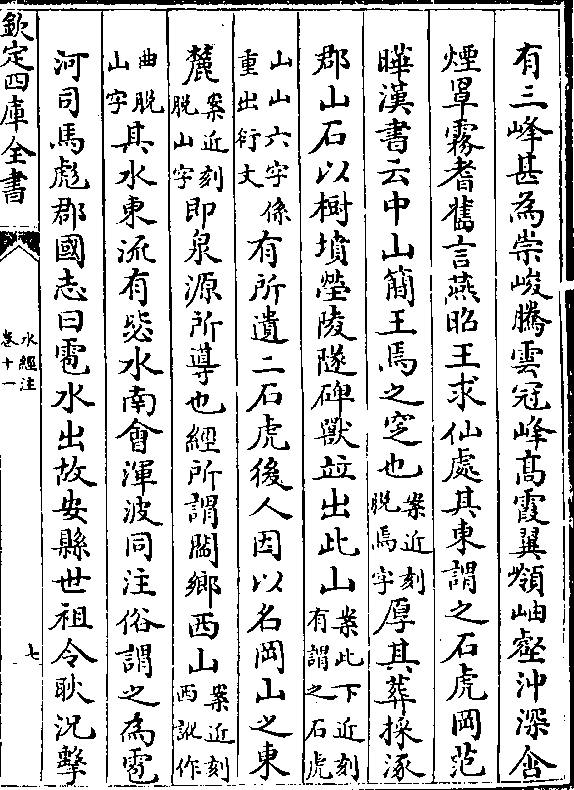 有三峰甚為崇峻騰雲冠峰髙霞翼嶺岫壑沖深含
煙罩霧耆舊言燕昭王求仙處其東謂之石虎岡范
曄漢書云中山簡王焉之窆也案近刻脱焉字厚其葬採涿
郡山石以樹墳塋陵隧碑獸竝出此山案此下近刻有謂之石虎
山山六字係重出衍文有所遺二石虎後人因以名岡山之東
麓案近刻脱山字即泉源所導也經所謂閻鄉西山案近刻西訛作
曲脱山字其水東流有毖水南會渾波同注俗謂之為雹
河司馬彪郡國志曰雹水出故安縣世祖令耿況擊
欽定四庫全書
水經注
卷十一
七